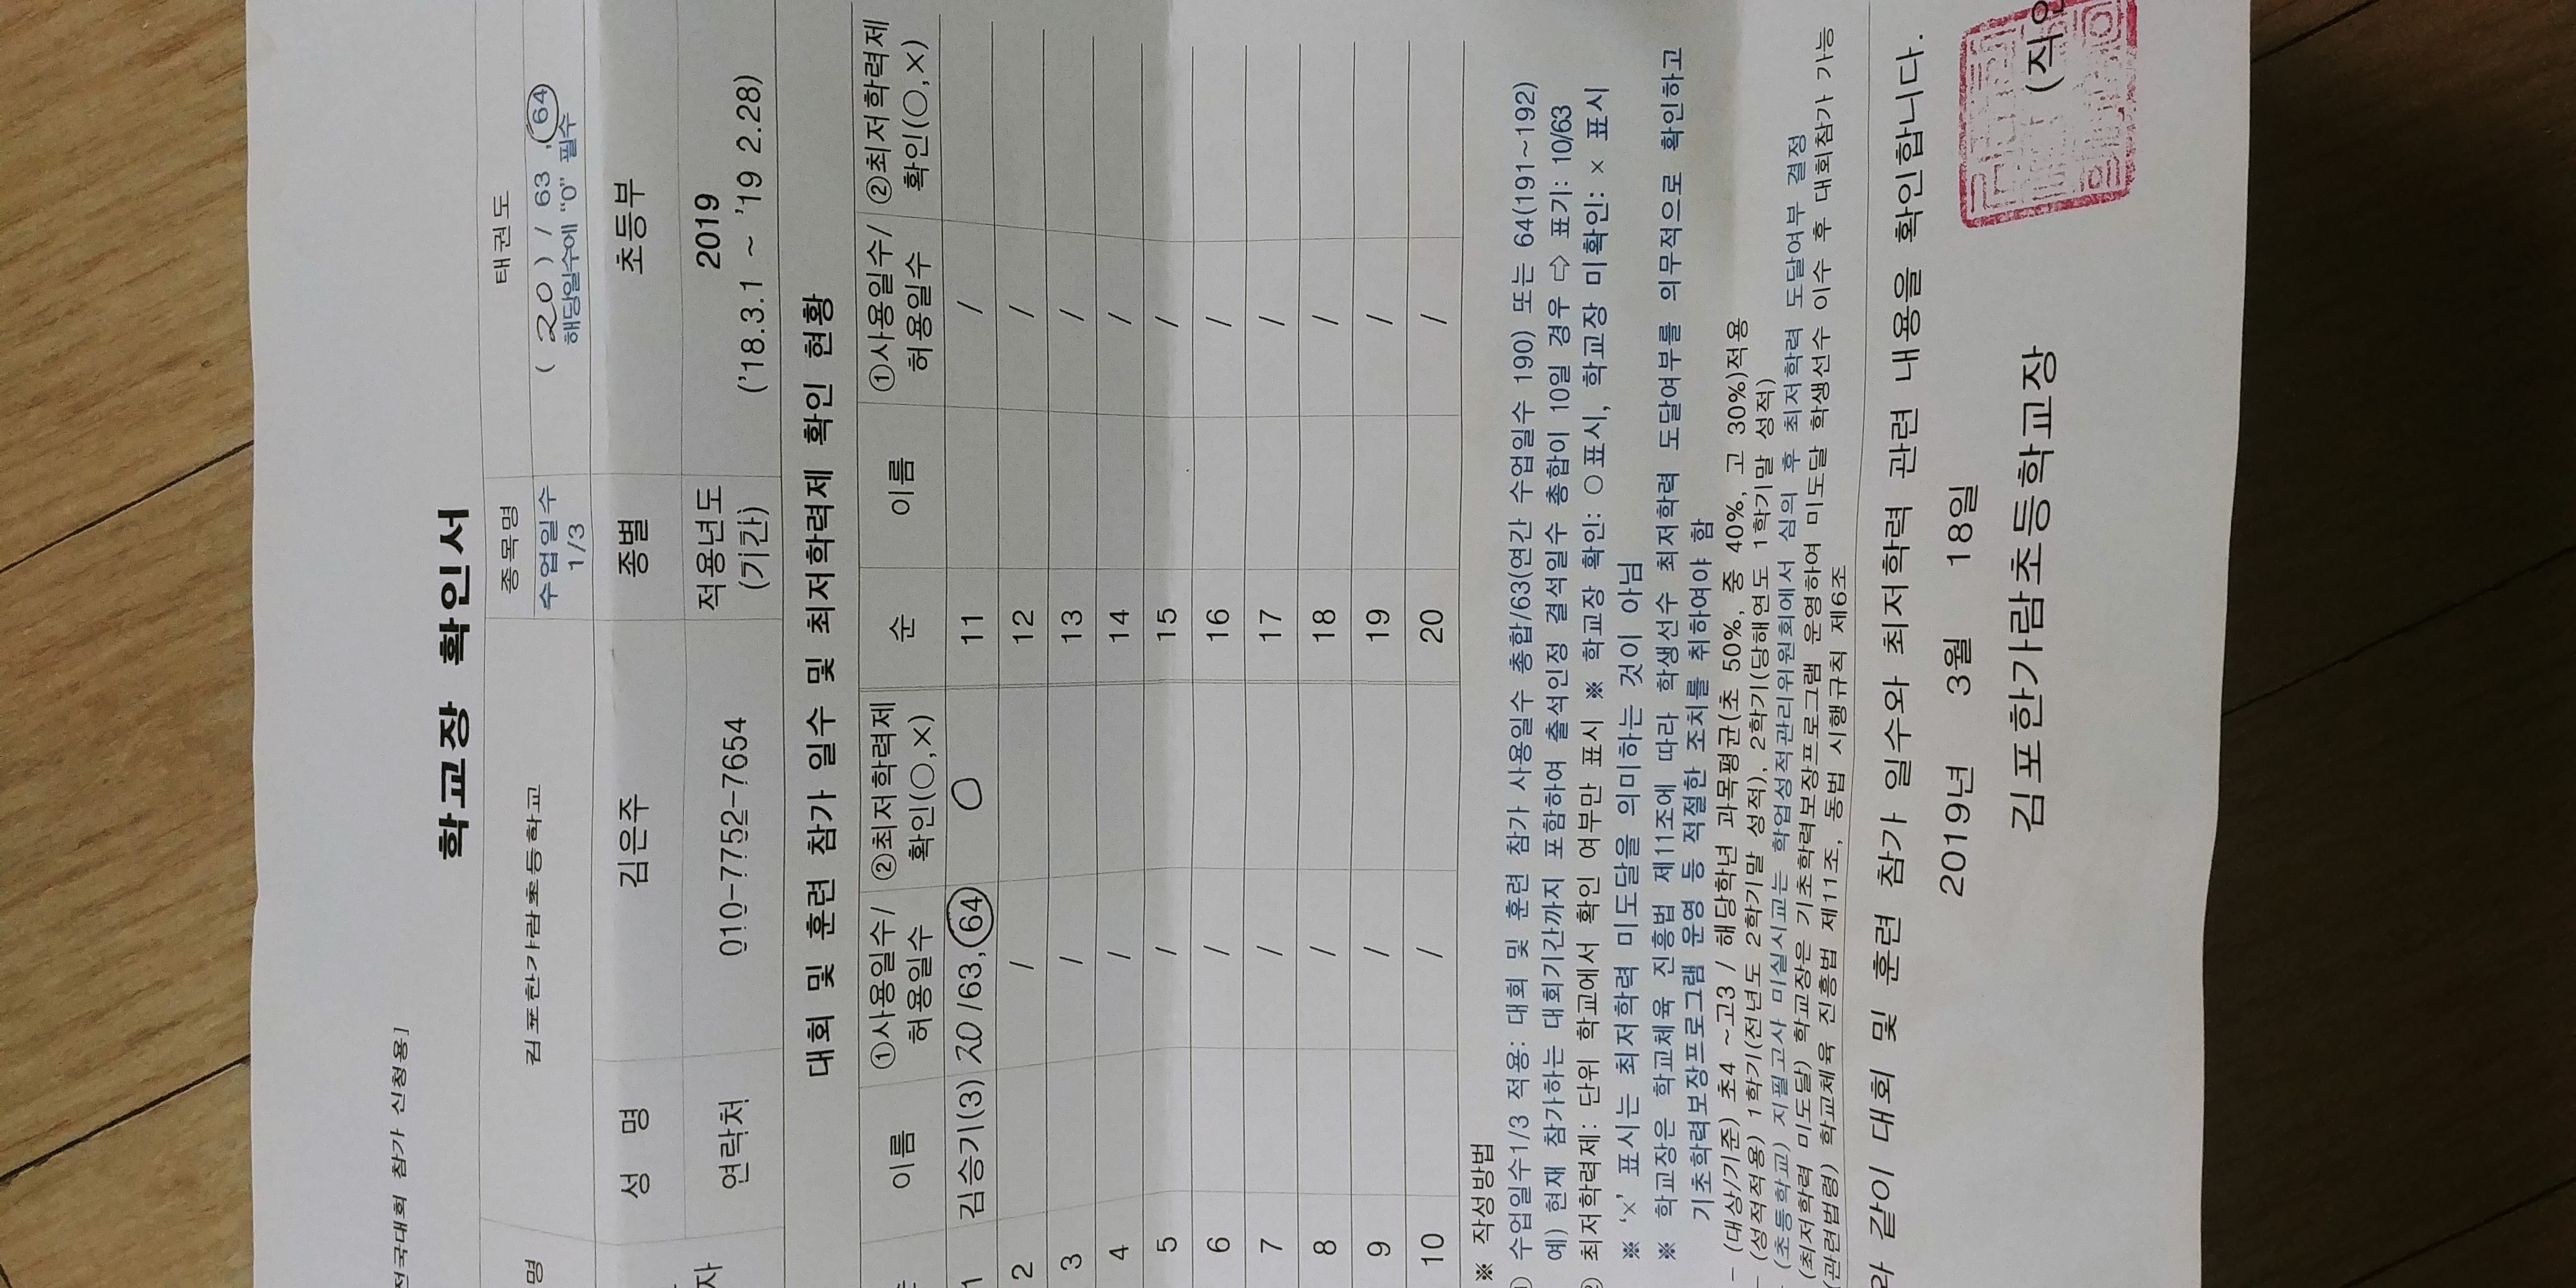 전국대회 참가 신청용]
학교장 확인서
명 김포한가람초등학교 종목명 태권도
수업일수 1/3 ( 20 ) / 63 , 64
해당일수에 "0" 필수
자 성 명 김은주 종별 초등부
연락처 010-7752-7654 적용년도 (기간) 2019
('18.3.1 ~ '19 2.28)
대회 및 훈련 참가 일수 및 최저학력제 확인 현황
이름 ①사용일수/허용일수 ②최저학력제 확인(○,×) 순 이름 ①사용일수/허용일수 ②최저학력제 확인(○,×)
1 김승기(3) 20/63,64 ○ 11 /
2 / 12 /
3 / 13 /
4 / 14 /
5 / 15 /
6 / 16 /
7 / 17 /
8 / 18 /
9 / 19 /
10 / 20 /
※ 작성방법
① 수업일수1/3 적용: 대회 및 훈련 참가 사용일수 총합/63(연간 수업일수 190) 또는 64(191~192)
예) 현재 참가하는 대회기간까지 포함하여 출석인정 결석일수 총합이 10일 경우 ⇨ 표기: 10/63
② 최저학력제: 단위 학교에서 확인 여부만 표시 ※ 학교장 확인: ○표시, 학교장 미확인: × 표시
※ '×' 표시는 최저학력 미도달을 의미하는 것이 아님
※ 학교장은 학교체육 진흥법 제11조에 따라 학생선수 최저학력 도달여부를 의무적으로 확인하고
기초학력보장프로그램 운영 등 적절한 조치를 취하여야 함
- (대상/기준) 초4 ~고3 / 해당학년 과목평균(초 50%, 중 40%, 고 30%)적용
- (성적적용) 1학기(전년도 2학기말 성적), 2학기(당해연도 1학기말 성적)
- (초등학교) 지필고사 미실시교는 학업성적관리위원회에서 심의 후 최저학력 도달여부 결정
(최저학력 미도달) 학교장은 기초학력보장프로그램 운영하여 미도달 학생선수 이수 후 대회참가 가능
(관련법령) 학교체육 진흥법 제11조, 동법 시행규칙 제6조
와 같이 대회 및 훈련 참가 일수와 최저학력 관련 내용을 확인합니다.
2019년 3월 18일
김포한가람초등학교장 (직인